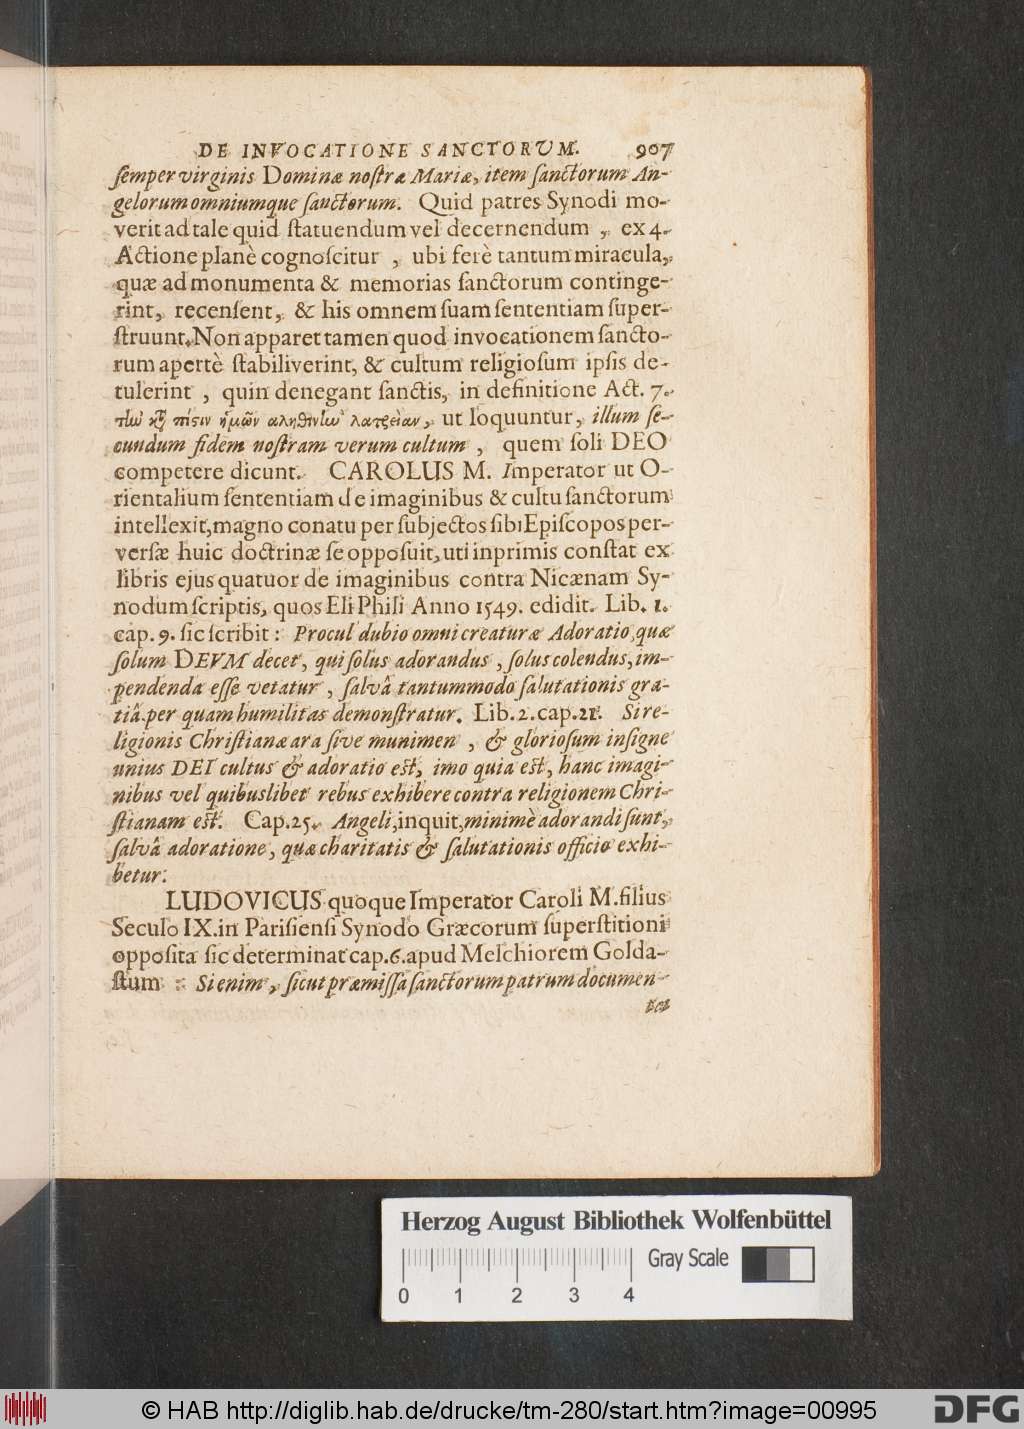 DE INVOCATIONE SANCTORUM. 907
ſemper virginis Dominæ noſtræ Mariæ, item ſanctorum An-
gelorum omniumque ſanctorum. Quid patres Synodi mo-
verit ad tale quid ſtatuendum vel decernendum, ex 4.
Actione planè cognoſcitur, ubi ferè tantum miracula,
quæ ad monumenta & memorias ſanctorum continge-
rint, recenſent, & his omnem ſuam ſententiam ſuper-
ſtruunt. Non apparet tamen quod invocationem ſancto-
rum apertè ſtabiliverint, & cultum religioſum ipſis de-
tulerint, quin denegant ſanctis, in definitione Act. 7.
τὴν κτ̃ πίςιν ἡμῶν αληθινὴν λατρείαν, ut loquuntur, illum ſe-
cundum fidem noſtram verum cultum, quem ſoli DEO
competere dicunt. CAROLUS M. Imperator ut O-
rientalium ſententiam de imaginibus & cultu ſanctorum
intellexit, magno conatu per ſubjectos ſibi Epiſcopos per-
verſæ huic doctrinæ ſe oppoſuit, uti inprimis conſtat ex
libris ejus quatuor de imaginibus contra Nicænam Sy-
nodum ſcriptis, quos Eli Phili Anno 1549. edidit. Lib. 1.
cap. 9. ſic ſcribit: Procul dubio omni creaturæ Adoratio, quæ
ſolum DEVM decet, qui ſolus adorandus, ſolus colendus, im-
pendenda eſſe vetatur, ſalvâ tantummodo ſalutationis gra-
tiâ, per quam humilitas demonſtratur. Lib. 2. cap. 21. Si re-
ligionis Chriſtianæ ara ſive munimen, & glorioſum inſigne
unius DEI cultus & adoratio eſt, imo quia eſt, hanc imagi-
nibus vel quibuslibet rebus exhibere contra religionem Chri-
ſtianam eſt. Cap. 25. Angeli, inquit, minimè adorandi ſunt,
ſalvâ adoratione, quæ charitatis & ſalutationis officio exhi-
betur.
LUDOVICUS quoque Imperator Caroli M. filius
Seculo IX. in Pariſienſi Synodo Græcorum ſuperſtitioni
oppoſita ſic determinat cap. 6. apud Melchiorem Golda-
ſtum: Si enim, ſicut præmiſſa ſanctorum patrum documen-
ta
Herzog August Bibliothek Wolfenbüttel
Gray Scale
0 1 2 3 4
© HAB http://diglib.hab.de/drucke/tm-280/start.htm?image=00995
DFG